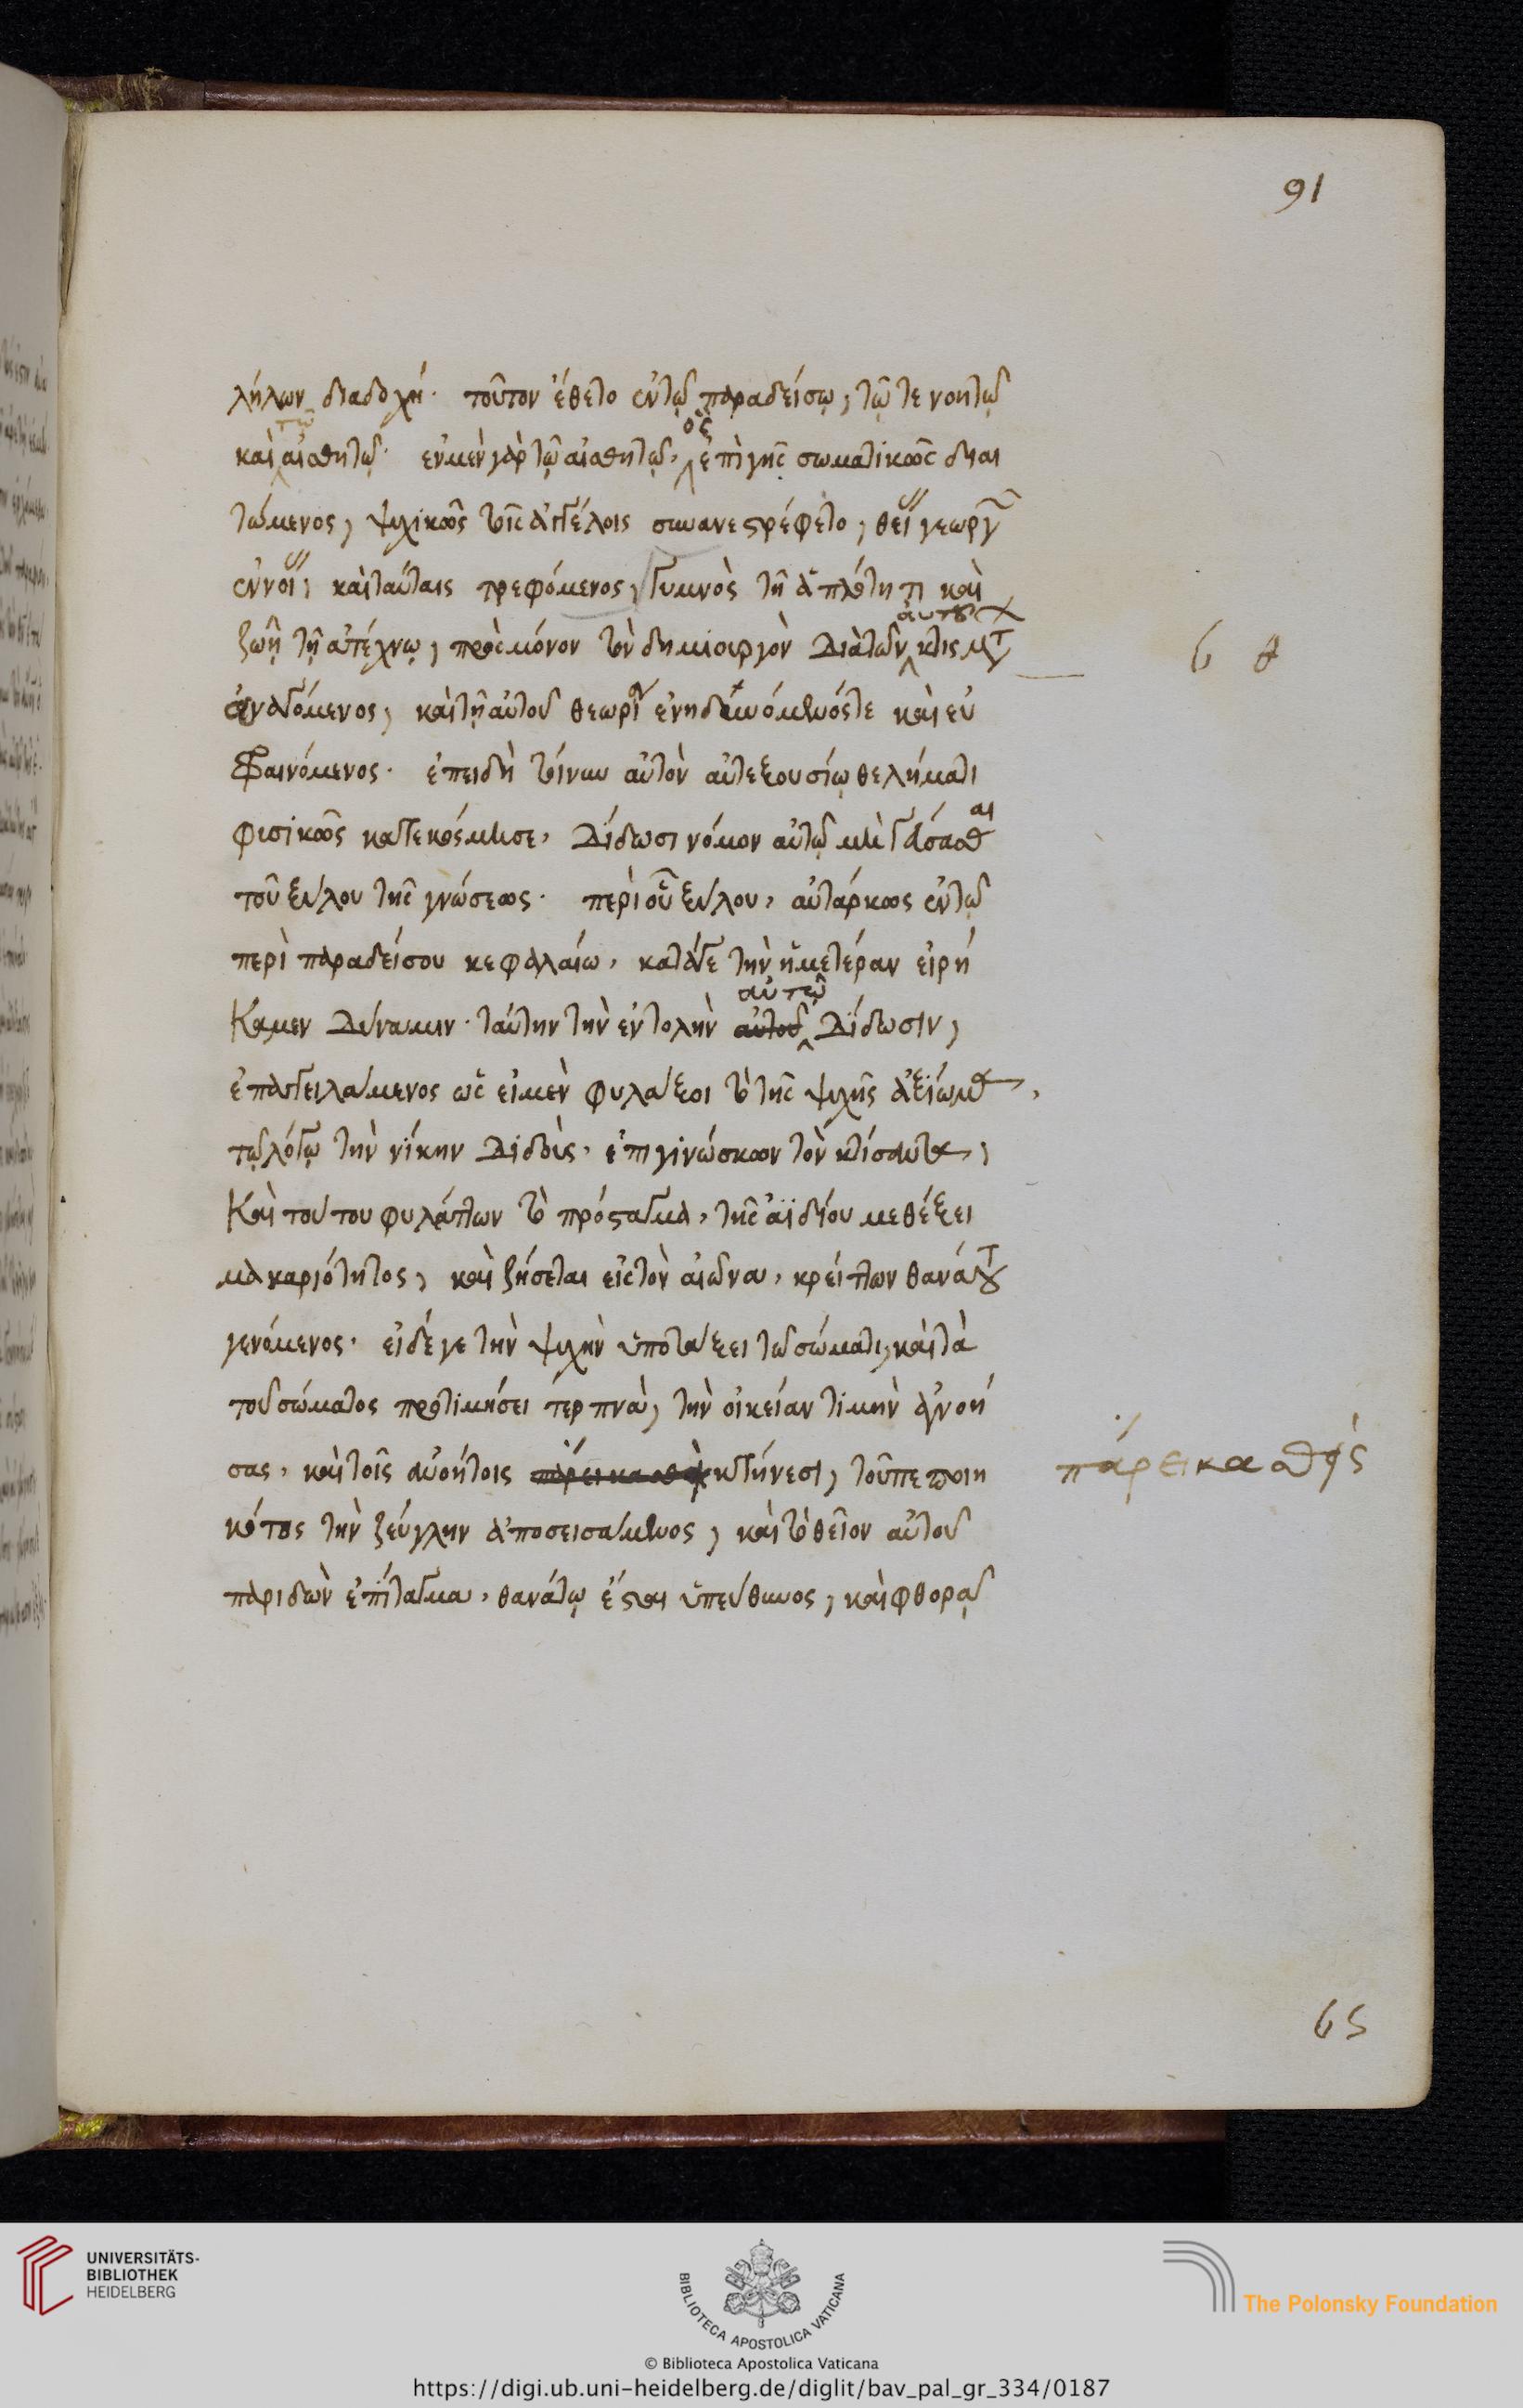 91
λήλων διαδοχή· τοῦτον ἔθετο ἐν τῷ παραδείσῳ, τῷ τε νοητῷ
τῷ
ὃς
καὶ αἰσθητῷ· ἐν μὲν γὰρ τῷ αἰσθητῷ, ἐπὶ γῆς σωματικῶς διαι
τώμενος, ψυχικῶς τοῖς ἀγγέλοις συνανεστρέφετο, θείας γεωργῶν
ἐννοίας, καὶ ταύταις τρεφόμενος, γυμνὸς τῇ ἁπλότητι καὶ
αὐτοῦ
ζωῇ τῇ ἀτέχνῳ, πρὸς μόνον τὸν δημιουργὸν διὰ τῶν κτισμάτων
6 θ
ἀναγόμενος, καὶ τῇ αὐτοῦ θεωρίᾳ ἐνηδυνόμενός τε καὶ εὐ
φραινόμενος· ἐπειδὴ τοίνυν αὐτὸν αὐτεξουσίῳ θελήματι
φυσικῶς κατεκόσμησε, δίδωσι νόμον αὐτῷ μὴ γεύσασθαι
τοῦ ξύλου τῆς γνώσεως· περὶ οὗ ξύλου, αὐτάρκως ἐν τῷ
περὶ παραδείσου κεφαλαίῳ, κατά γε τὴν ἡμετέραν εἰρή
αὐτῷ
καμεν δύναμιν· ταύτην τὴν ἐντολὴν αὐτοῦ δίδωσιν,
ἐπαγγειλάμενος ὡς εἰ μὲν φυλάξοι τὸ τῆς ψυχῆς ἀξίωμα,
τῷ λόγῳ τὴν νίκην διδοὺς, ἐπιγινώσκων τὸν κτίσαντα,
καὶ τούτου φυλάττων τὸ πρόσταγμα, τῆς ἀϊδίου μεθέξει
μακαριότητος, καὶ ζήσεται εἰς τὸν αἰῶνα, κρείττων θανάτου
γενόμενος· εἰ δέ γε τὴν ψυχὴν ὑποτάξει τῷ σώματι, καὶ τὰ
τοῦ σώματος προτιμήσει τερπνὰ, τὴν οἰκείαν τιμὴν ἀγνοή
σας, καὶ τοῖς ἀνοήτοις παρεικασθεὶς κτήνεσι, τοῦ πεποιη
παρεικασθείς
κότος τὴν ζεύγλην ἀποσεισάμενος, καὶ τὸ θεῖον αὐτοῦ
παριδὼν ἐπίταγμα, θανάτῳ ἔσται ὑπεύθυνος, καὶ φθορᾷ
65
UNIVERSITÄTS-
BIBLIOTHEK
HEIDELBERG
BIBLIOTECA APOSTOLICA VATICANA
The Polonsky Foundation
© Biblioteca Apostolica Vaticana
https://digi.ub.uni-heidelberg.de/diglit/bav_pal_gr_334/0187